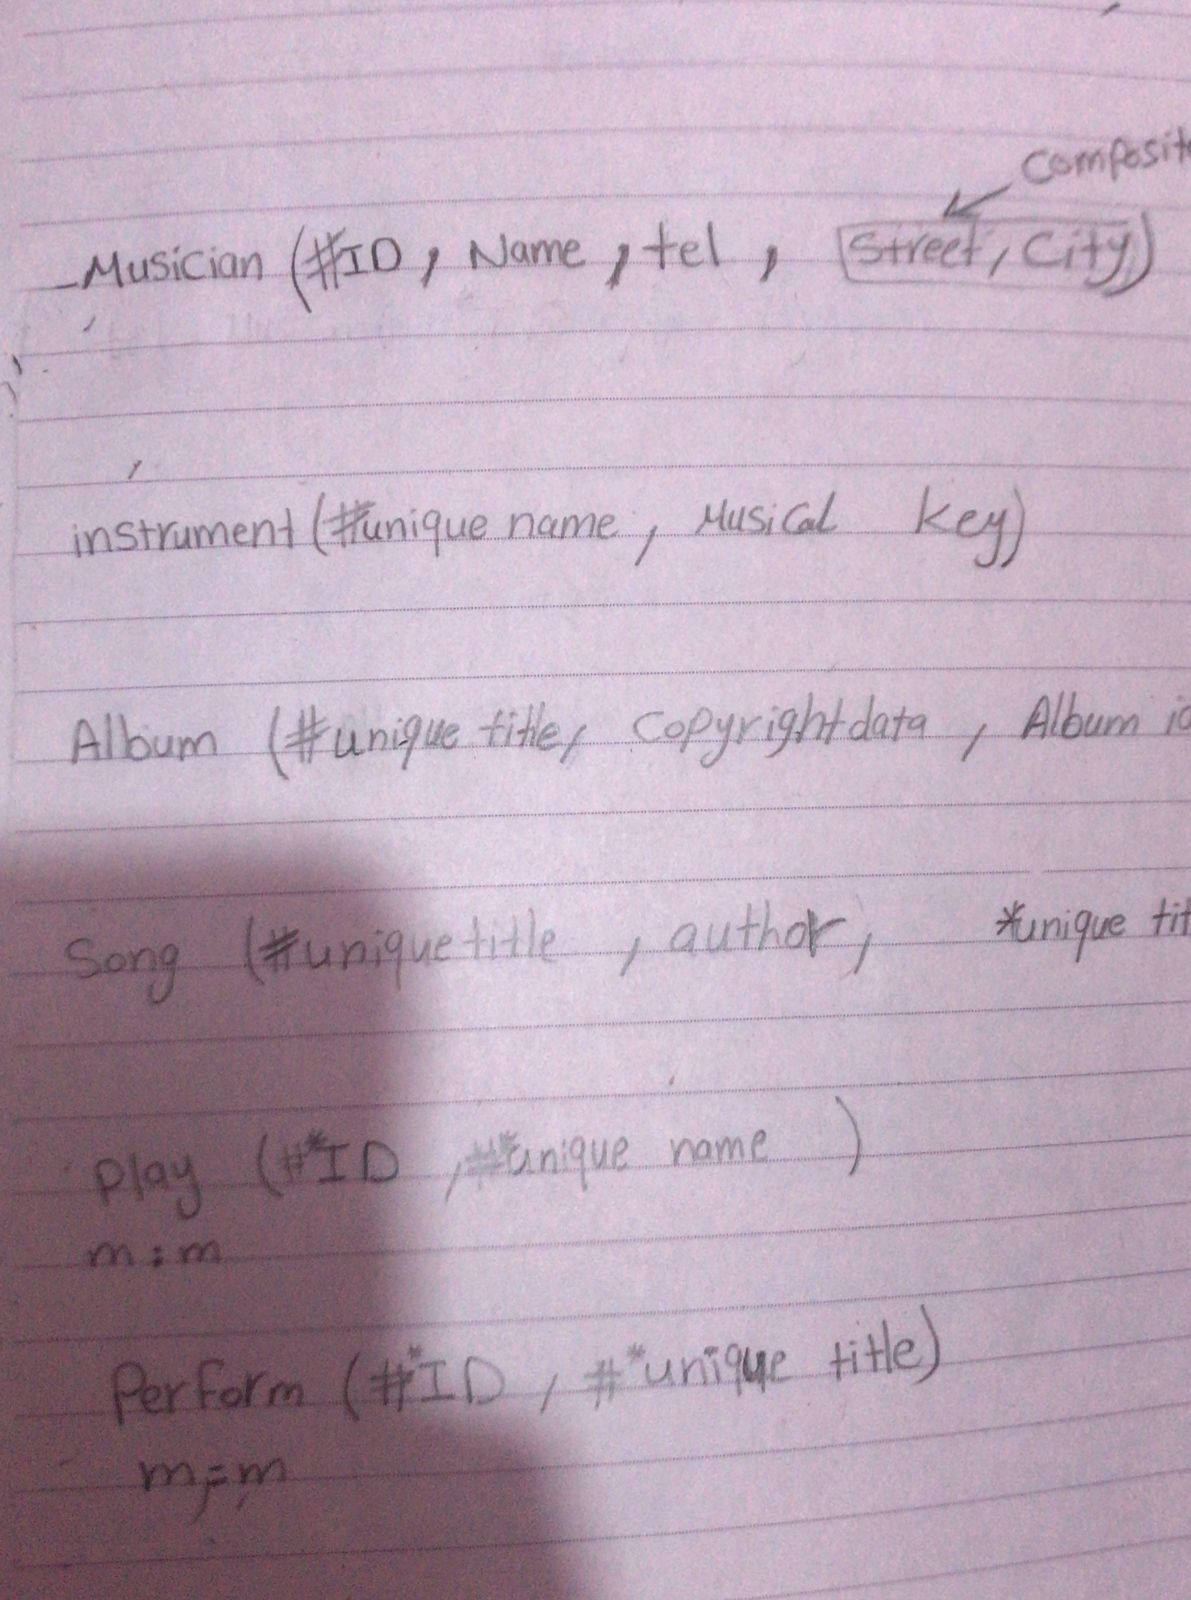 Composit
Musician (#ID, Name, tel, Street, City)
instrument (#unique name, Musical key)
Album (#unique title, Copyrightdata, Album id
Song (#unique title, author, *unique tit
Play (#*ID, #*unique name)
m:m
Perform (#*ID, #*unique title)
m:m